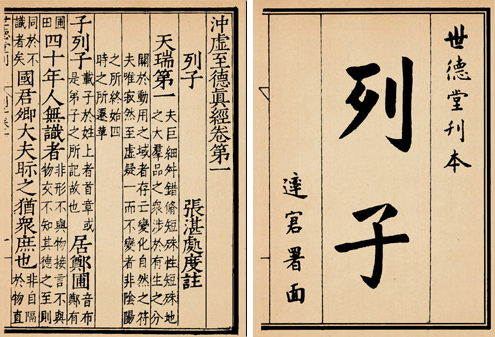 世德堂刊本
列子
達
署面
沖虛至德眞經卷第一
列子　張湛處度註
天瑞第一　夫巨細舛錯脩短殊性雖天地
之大羣品之衆涉於有生之分
關於動用之域者存亡變化自然之符
夫唯寂然至虛凝一而不變者非陰陽
之所終始四
時之所遷革
子列子　載子於姓上者首章或
是弟子之所記故也　居鄭圃　音布
鄭有
圃
田　四十年人無識者　非形不與物接言不與
物交不知其德之至則
同於不
識者矣　國君卿大夫眎之猶衆庶也　非自隔
於物直
世德堂刊